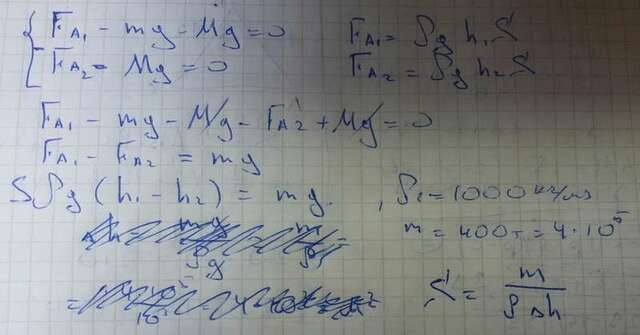 F_A₁ - mg - Mg = 0    F_A₁ = ρg h₁ S
F_A₂ - Mg = 0    F_A₂ = ρg h₂ S
F_A₁ - mg - Mg - F_A₂ + Mg = 0
F_A₁ - F_A₂ = mg
Sρg (h₁ - h₂) = mg. , ρ = 1000 кг/м³
m = 400т = 4·10⁵
S = m / ρ Δh